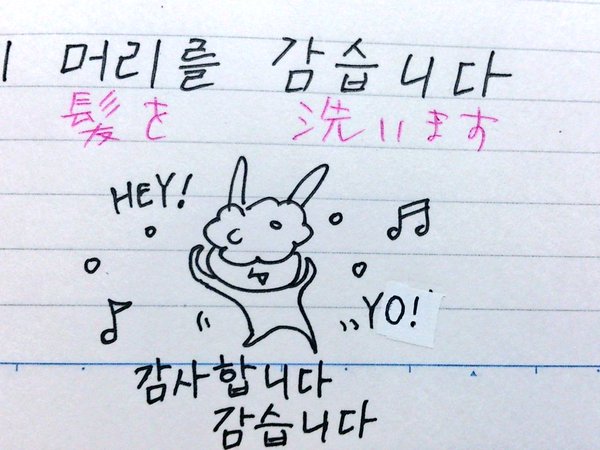 머리를 감습니다
髪を 洗います
HEY!
YO!
감사합니다
감습니다